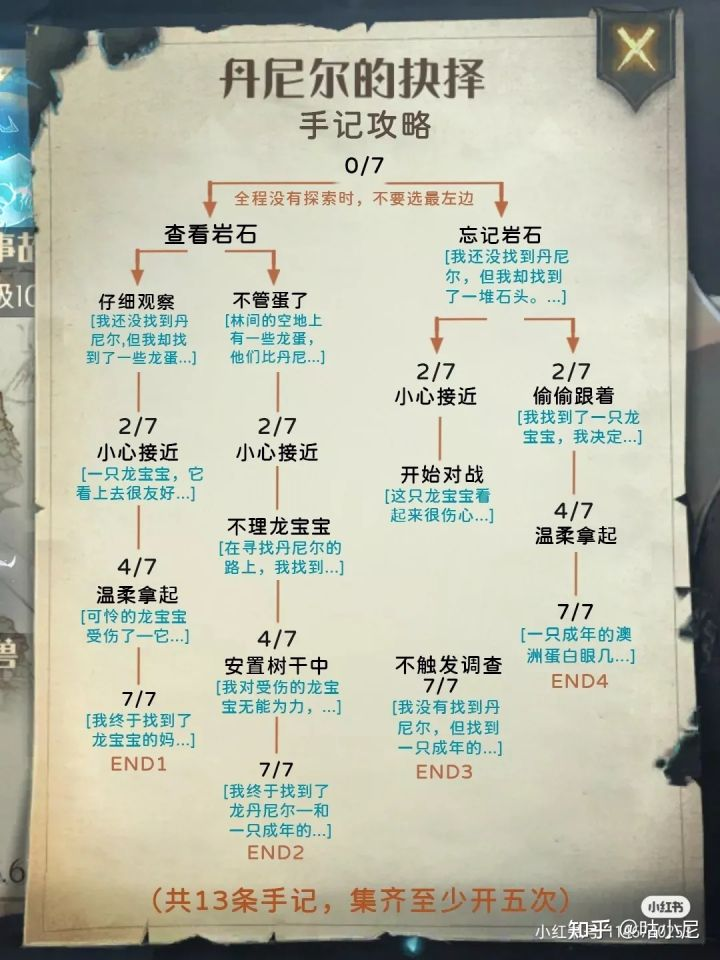 丹尼尔的抉择
手记攻略
0/7
全程没有探索时，不要选最左边
查看岩石
仔细观察
[我还没找到丹
尼尔,但我却找
到了一些龙蛋...]
2/7
小心接近
[一只龙宝宝，它
看上去很友好...]
4/7
温柔拿起
[可怜的龙宝宝
受伤了一它...]
7/7
[我终于找到了
龙宝宝的妈...]
END1
不管蛋了
[林间的空地上
有一些龙蛋，
他们比丹尼...]
2/7
小心接近
不理龙宝宝
[在寻找丹尼尔的
路上，我找到...]
4/7
安置树干中
[我对受伤的龙宝
宝无能为力，...]
7/7
[我终于找到了
龙丹尼尔一和
一只成年的...]
END2
忘记岩石
[我还没找到丹尼
尔，但我却找到
了一堆石头。...]
2/7
小心接近
开始对战
[这只龙宝宝看
起来很伤心...]
不触发调查
7/7
[我没有找到丹
尼尔，但找到
一只成年的...]
END3
2/7
偷偷跟着
[我找到了一只龙
宝宝，我决定...]
4/7
温柔拿起
7/7
[一只成年的澳
洲蛋白眼几...]
END4
（共13条手记，集齐至少开五次）
小红书
知乎 @咕小尼